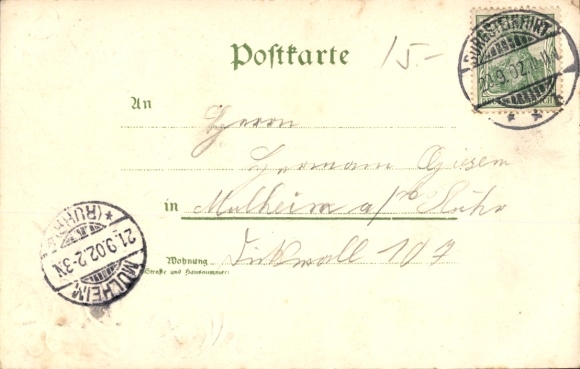 Postkarte
15.-
BURGSTEINFURT
21.9.02.
An
Herrn
Hermann Giesen
in Mülheim a/d Ruhr
Wohnung Dickswall 107
(Straße und Hausnummer)
MÜLHEIM (RUHR)
21.9.02.2-3N